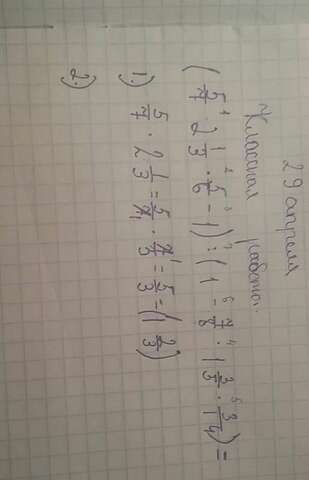 29 апреля
Классная работа.
(5/7 · 2 1/3 · 5/6 - 1) : (1 - 7/8 · 1 3/5 · 3/14) =
1) 5/7 · 2 1/3 = 5/7 · 7/3 = 5/3 = (1 2/3)
2)